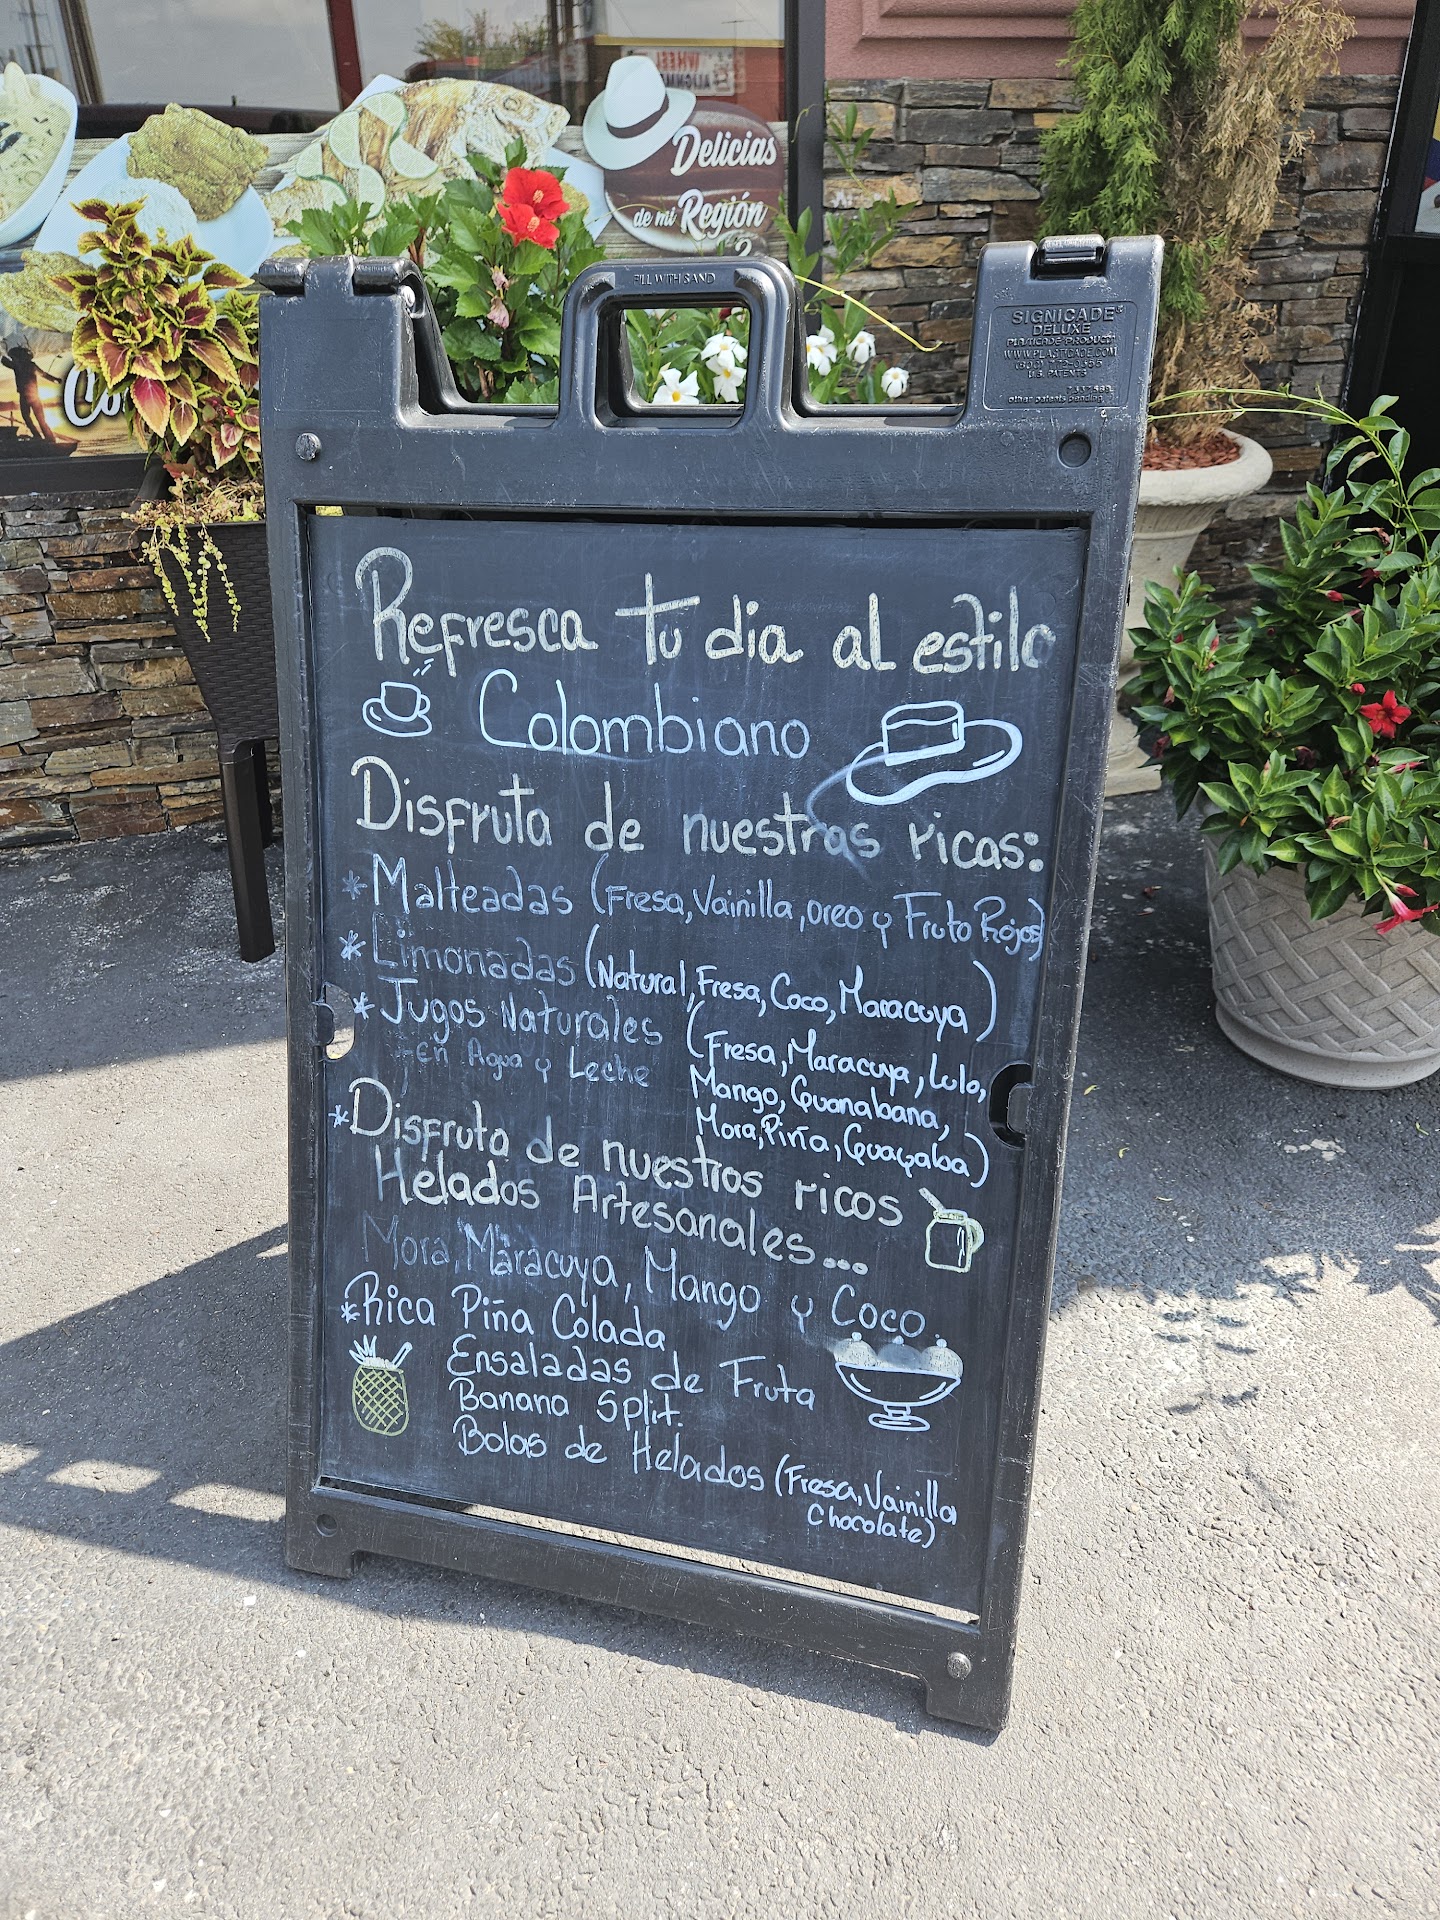 WHEEL
ALIGNM
Delicias
de mi Región
2
Co
FILL WITH SAND
SIGNICADE®
DELUXE
PLASTICADE PRODUCT
WWW.PLASTICADE.COM
U.S. PATENTS
other patents pending
Refresca tu dia al estilo
Colombiano
Disfruta de nuestras ricas:
*Malteadas (Fresa, Vainilla, oreo y Fruto Rojos)
*Limonadas (Natural, Fresa, Coco, Maracuya)
*Jugos Naturales (Fresa, Maracuya, Lulo,
En Agua y Leche
Mango, Guanabana,
Mora, Piña, Guayaba)
*Disfruta de nuestros ricos
Helados Artesanales...
Mora, Maracuya, Mango y Coco.
*Rica Piña Colada
Ensaladas de Fruta
Banana Split.
Bolas de Helados (Fresa, Vainilla
Chocolate)